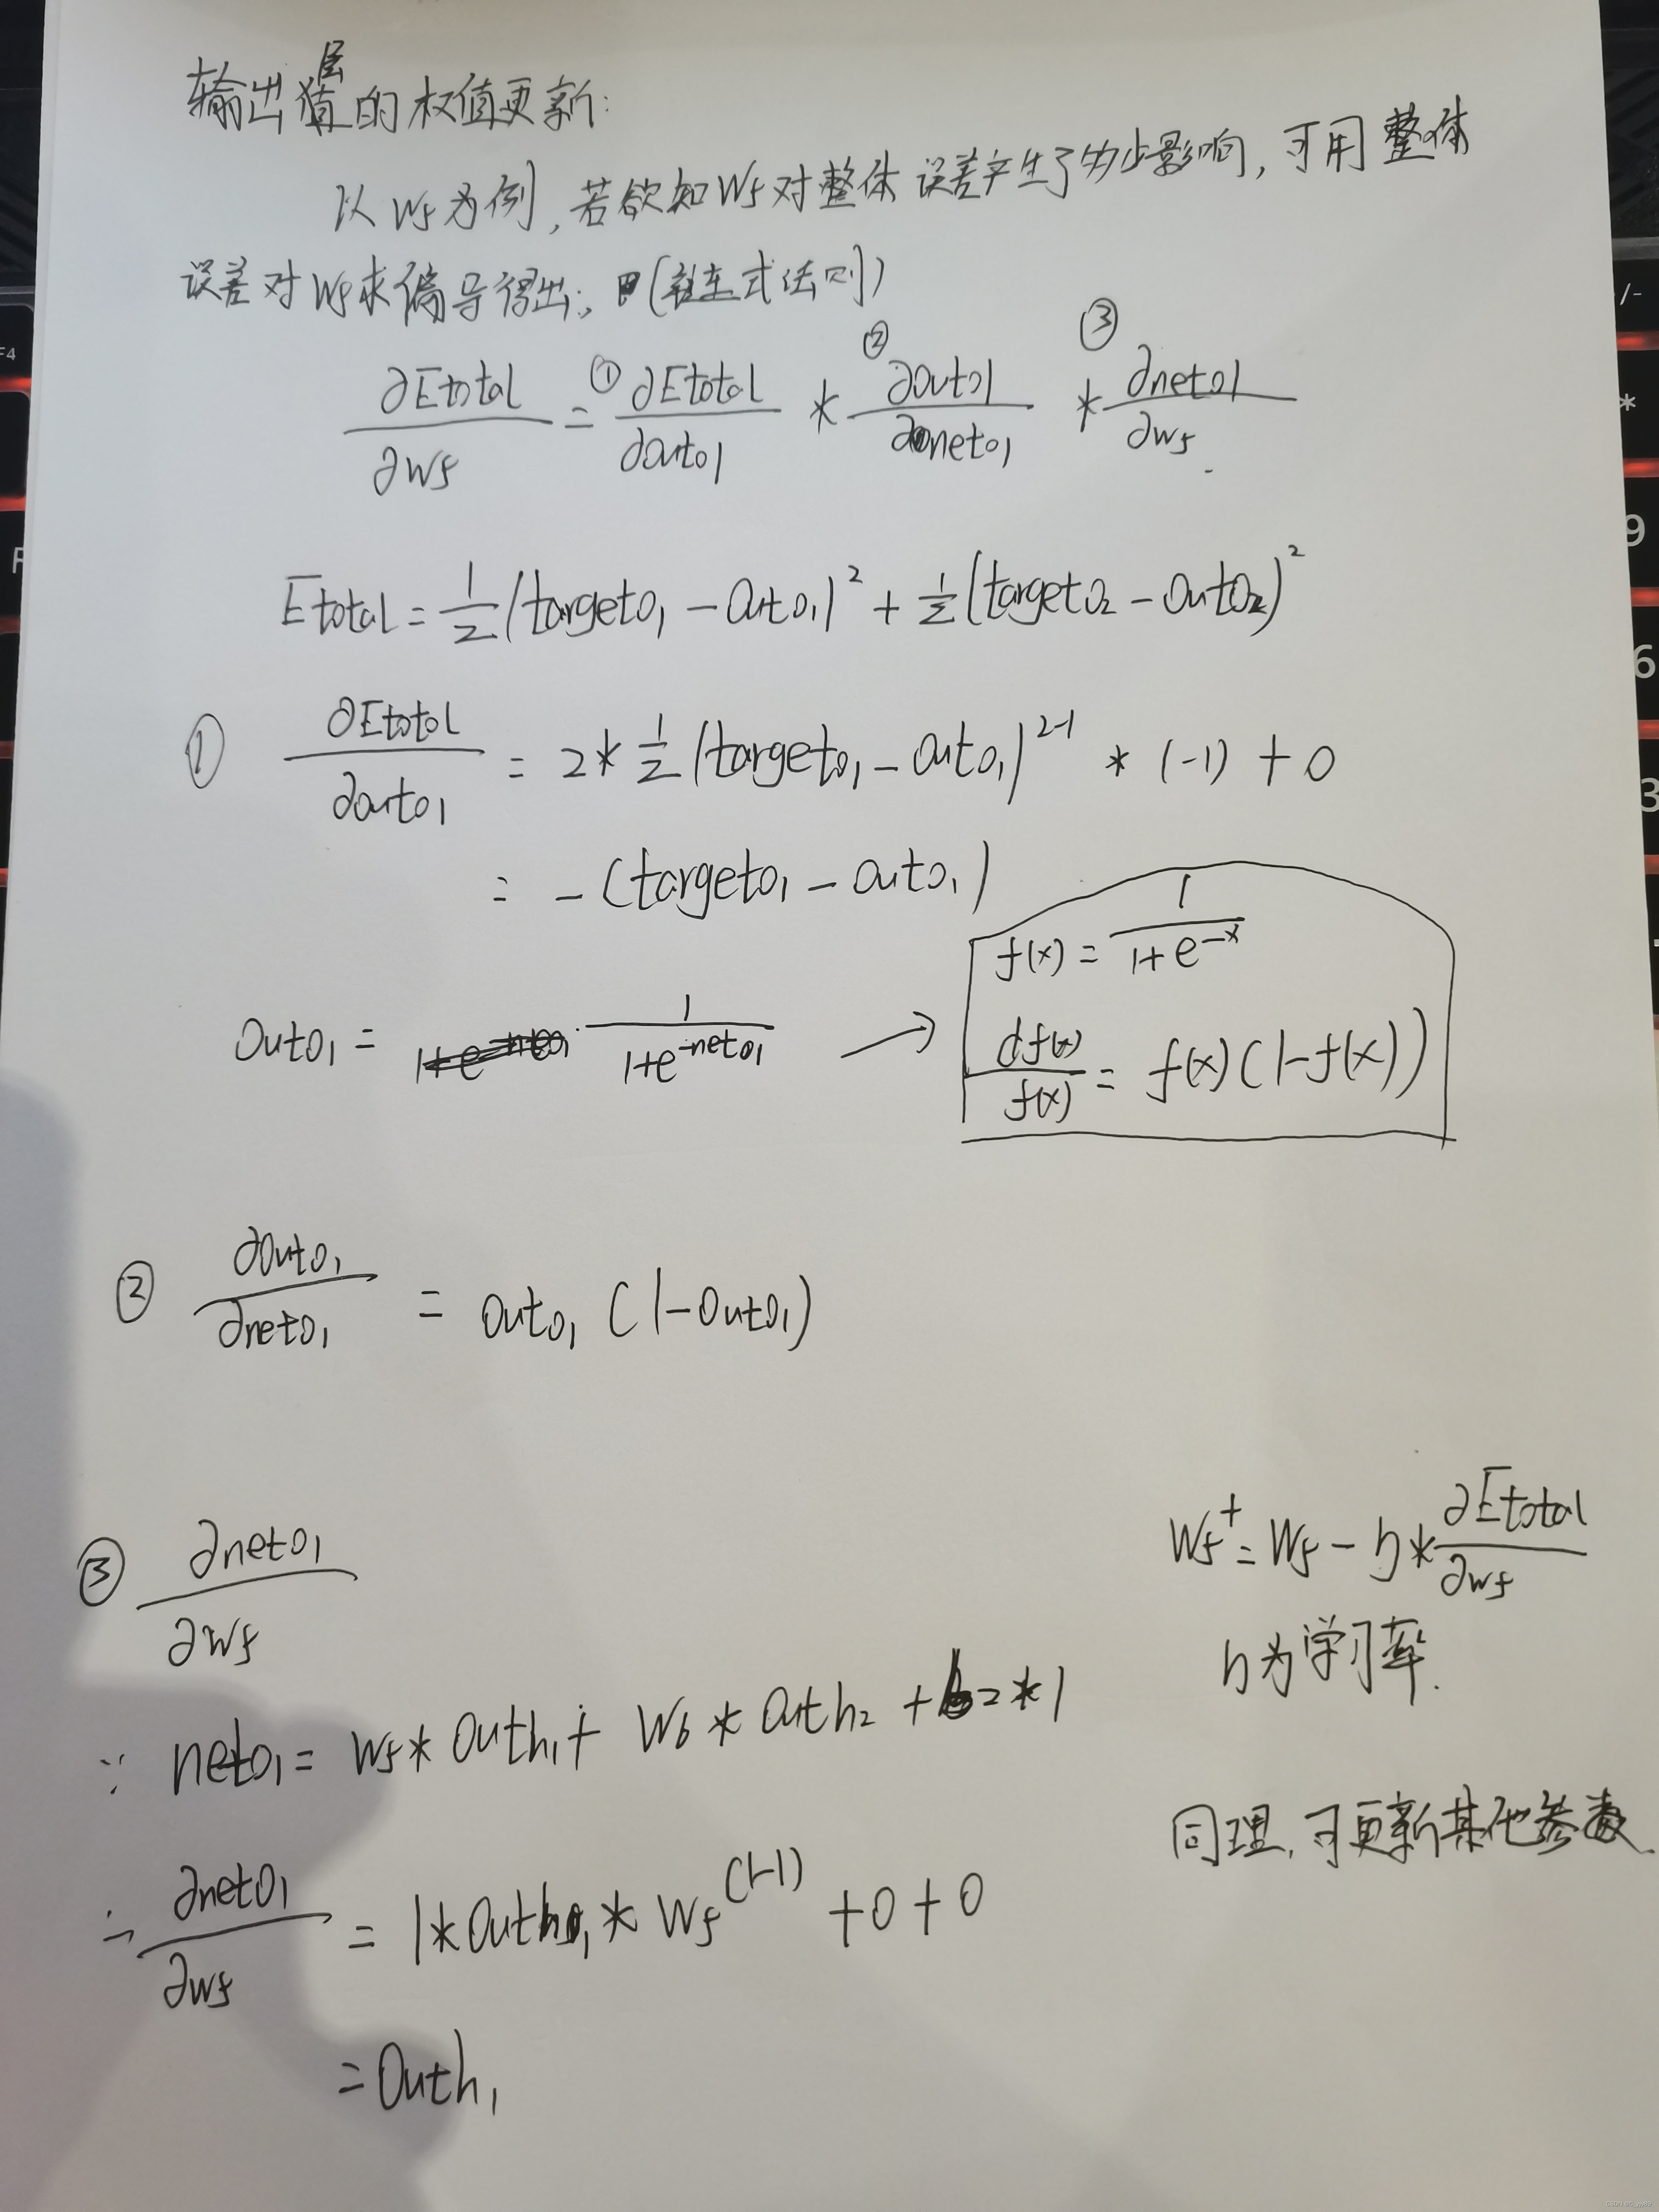 输出层的权值更新:
以w5为例,若欲知w5对整体误差产生了多少影响,可用整体
误差对w5求偏导得出:(链式法则)
∂Etotal/∂w5 = ①∂Etotal/∂outo1 * ②∂outo1/∂neto1 * ③∂neto1/∂w5
Etotal = 1/2(targeto1 - outo1)² + 1/2(targeto2 - outo2)²
① ∂Etotal/∂outo1 = 2*1/2(targeto1 - outo1)^(2-1) * (-1) + 0
= -(targeto1 - outo1)
f(x) = 1/(1+e^-x)
outo1 = 1/(1+e^-neto1) →
df(x)/f(x) = f(x)(1-f(x))
② ∂outo1/∂neto1 = outo1(1-outo1)
③ ∂neto1/∂w5
w5⁺ = w5 - η*∂Etotal/∂w5
η为学习率.
∵ neto1 = w5*outh1 + w6*outh2 + b2*1
同理,可更新其他参数.
∴ ∂neto1/∂w5 = 1*outh1*w5^(1-1) + 0 + 0
= outh1
F4
/-
*
9
6
3
F